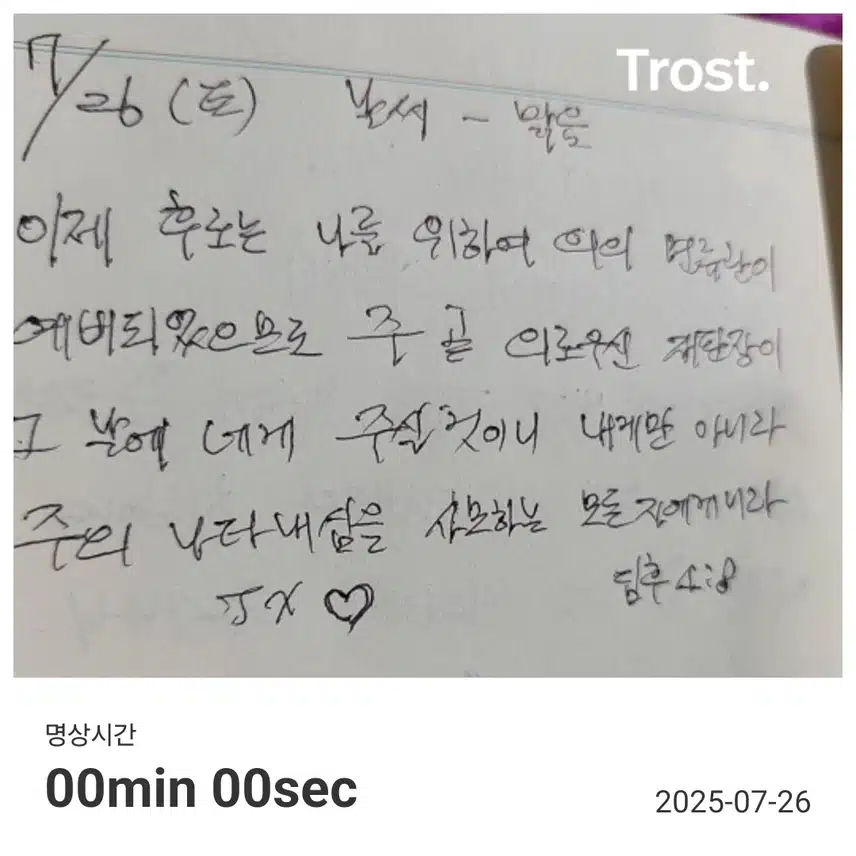 Trost.
7/26 (토) 날씨 - 맑음
이제 후로는 나를 위하여 의의 면류관이
예비되었으므로 주 곧 의로우신 재판장이
그 날에 내게 주실것이니 내게만 아니라
주의 나타내심을 사모하는 모든 자에게니라
딤후 4:8
JX♡
명상시간
00min 00sec
2025-07-26